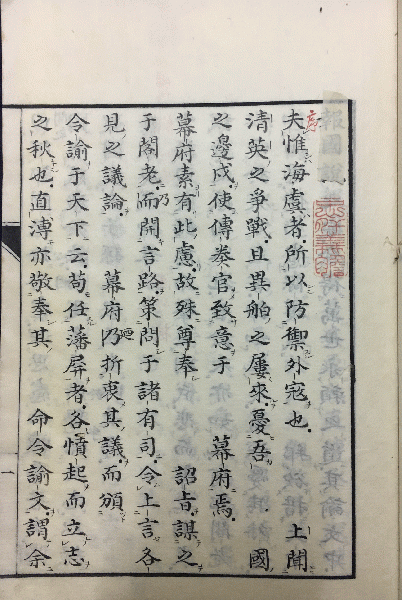 夫惟海虞者所以防禦外寇也　上聞
清英之爭戰且異舶之屢來憂吾　國
之邊戍使傳奏官致意于　幕府焉
幕府素有此慮故殊尊奉　詔旨謀之
于閣老而開言路策問于諸有司令上言各
見之議論　幕府乃折衷其議而頒
令諭于天下云苟任藩屏者各憤起而立志
之秋也直溥亦敬奉其　命令諭文謂余